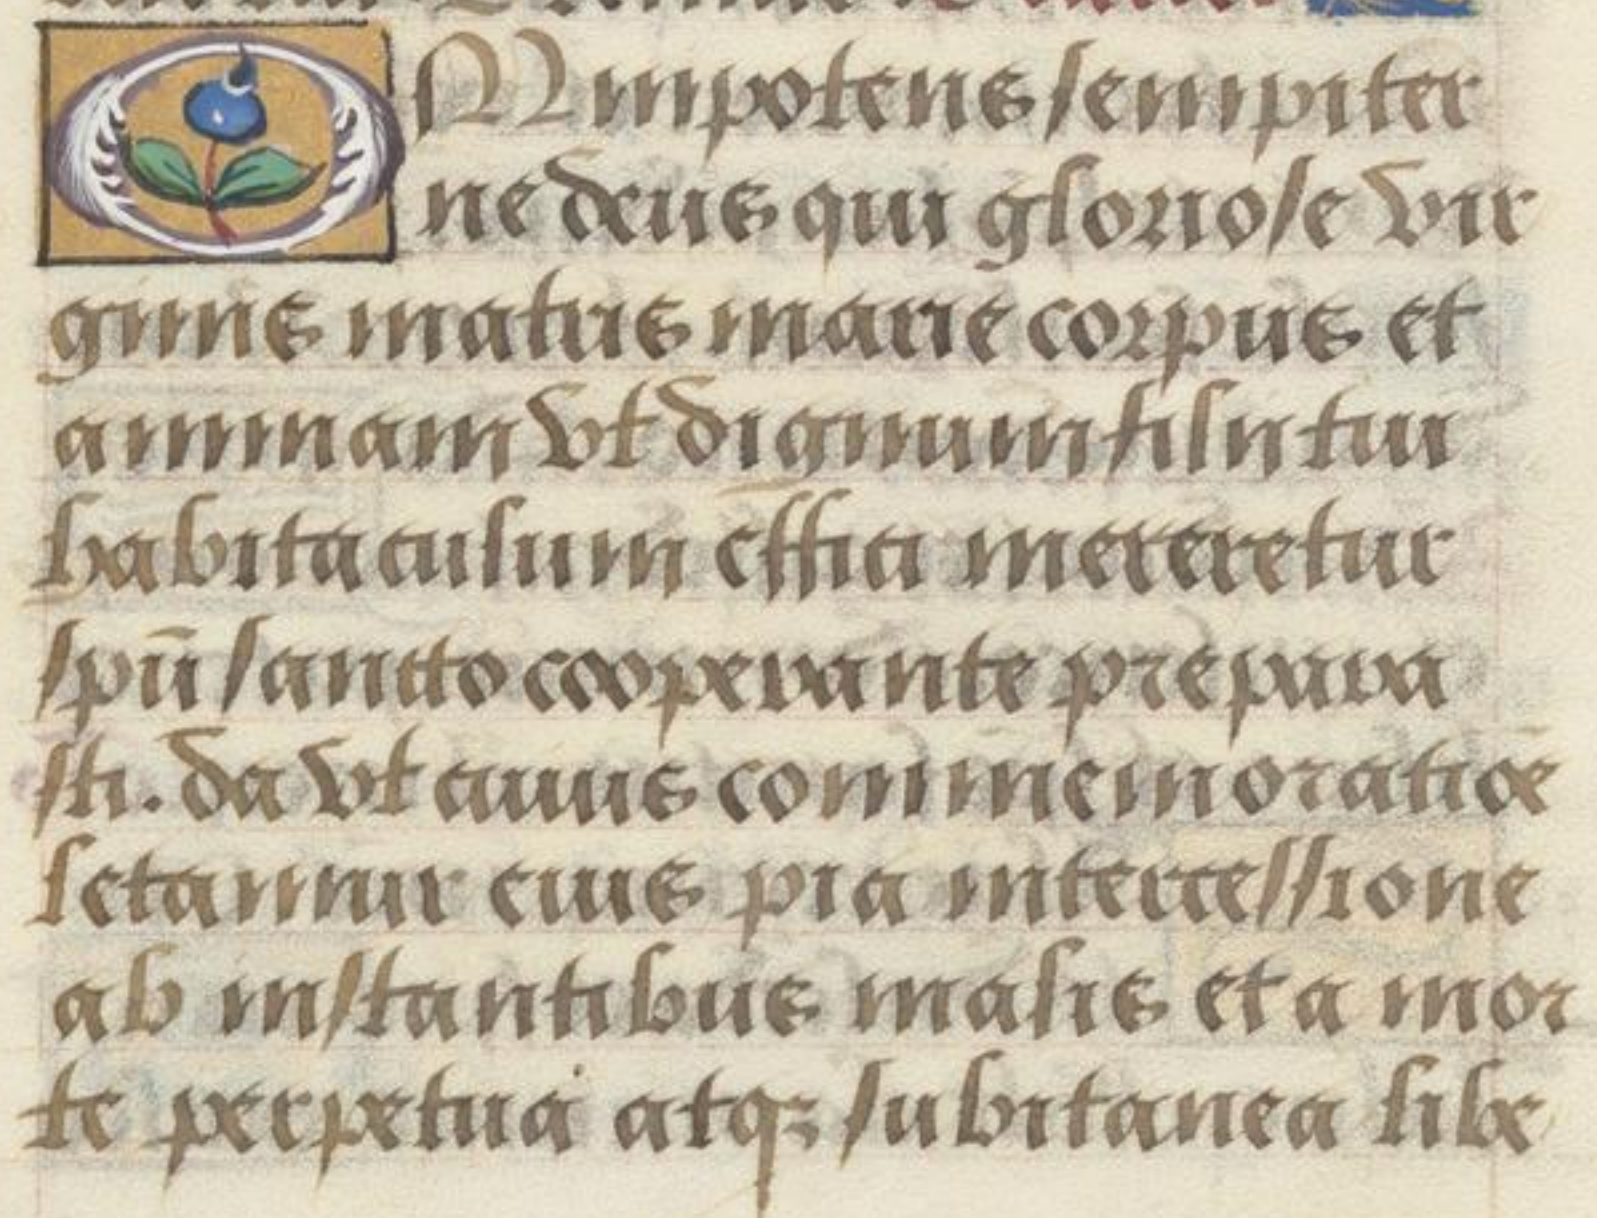 OMnipotens sempiter
ne deus qui gloriose vir
ginis matris marie corpus et
animam vt dignum filii tui
habitaculum effici mereretur
spū sancto cooperante prepara
sti. da vt cuius commemoratiōe
letamur eius pia intercessione
ab instantibus malis et a mor
te perpetua atq; subitanea libe